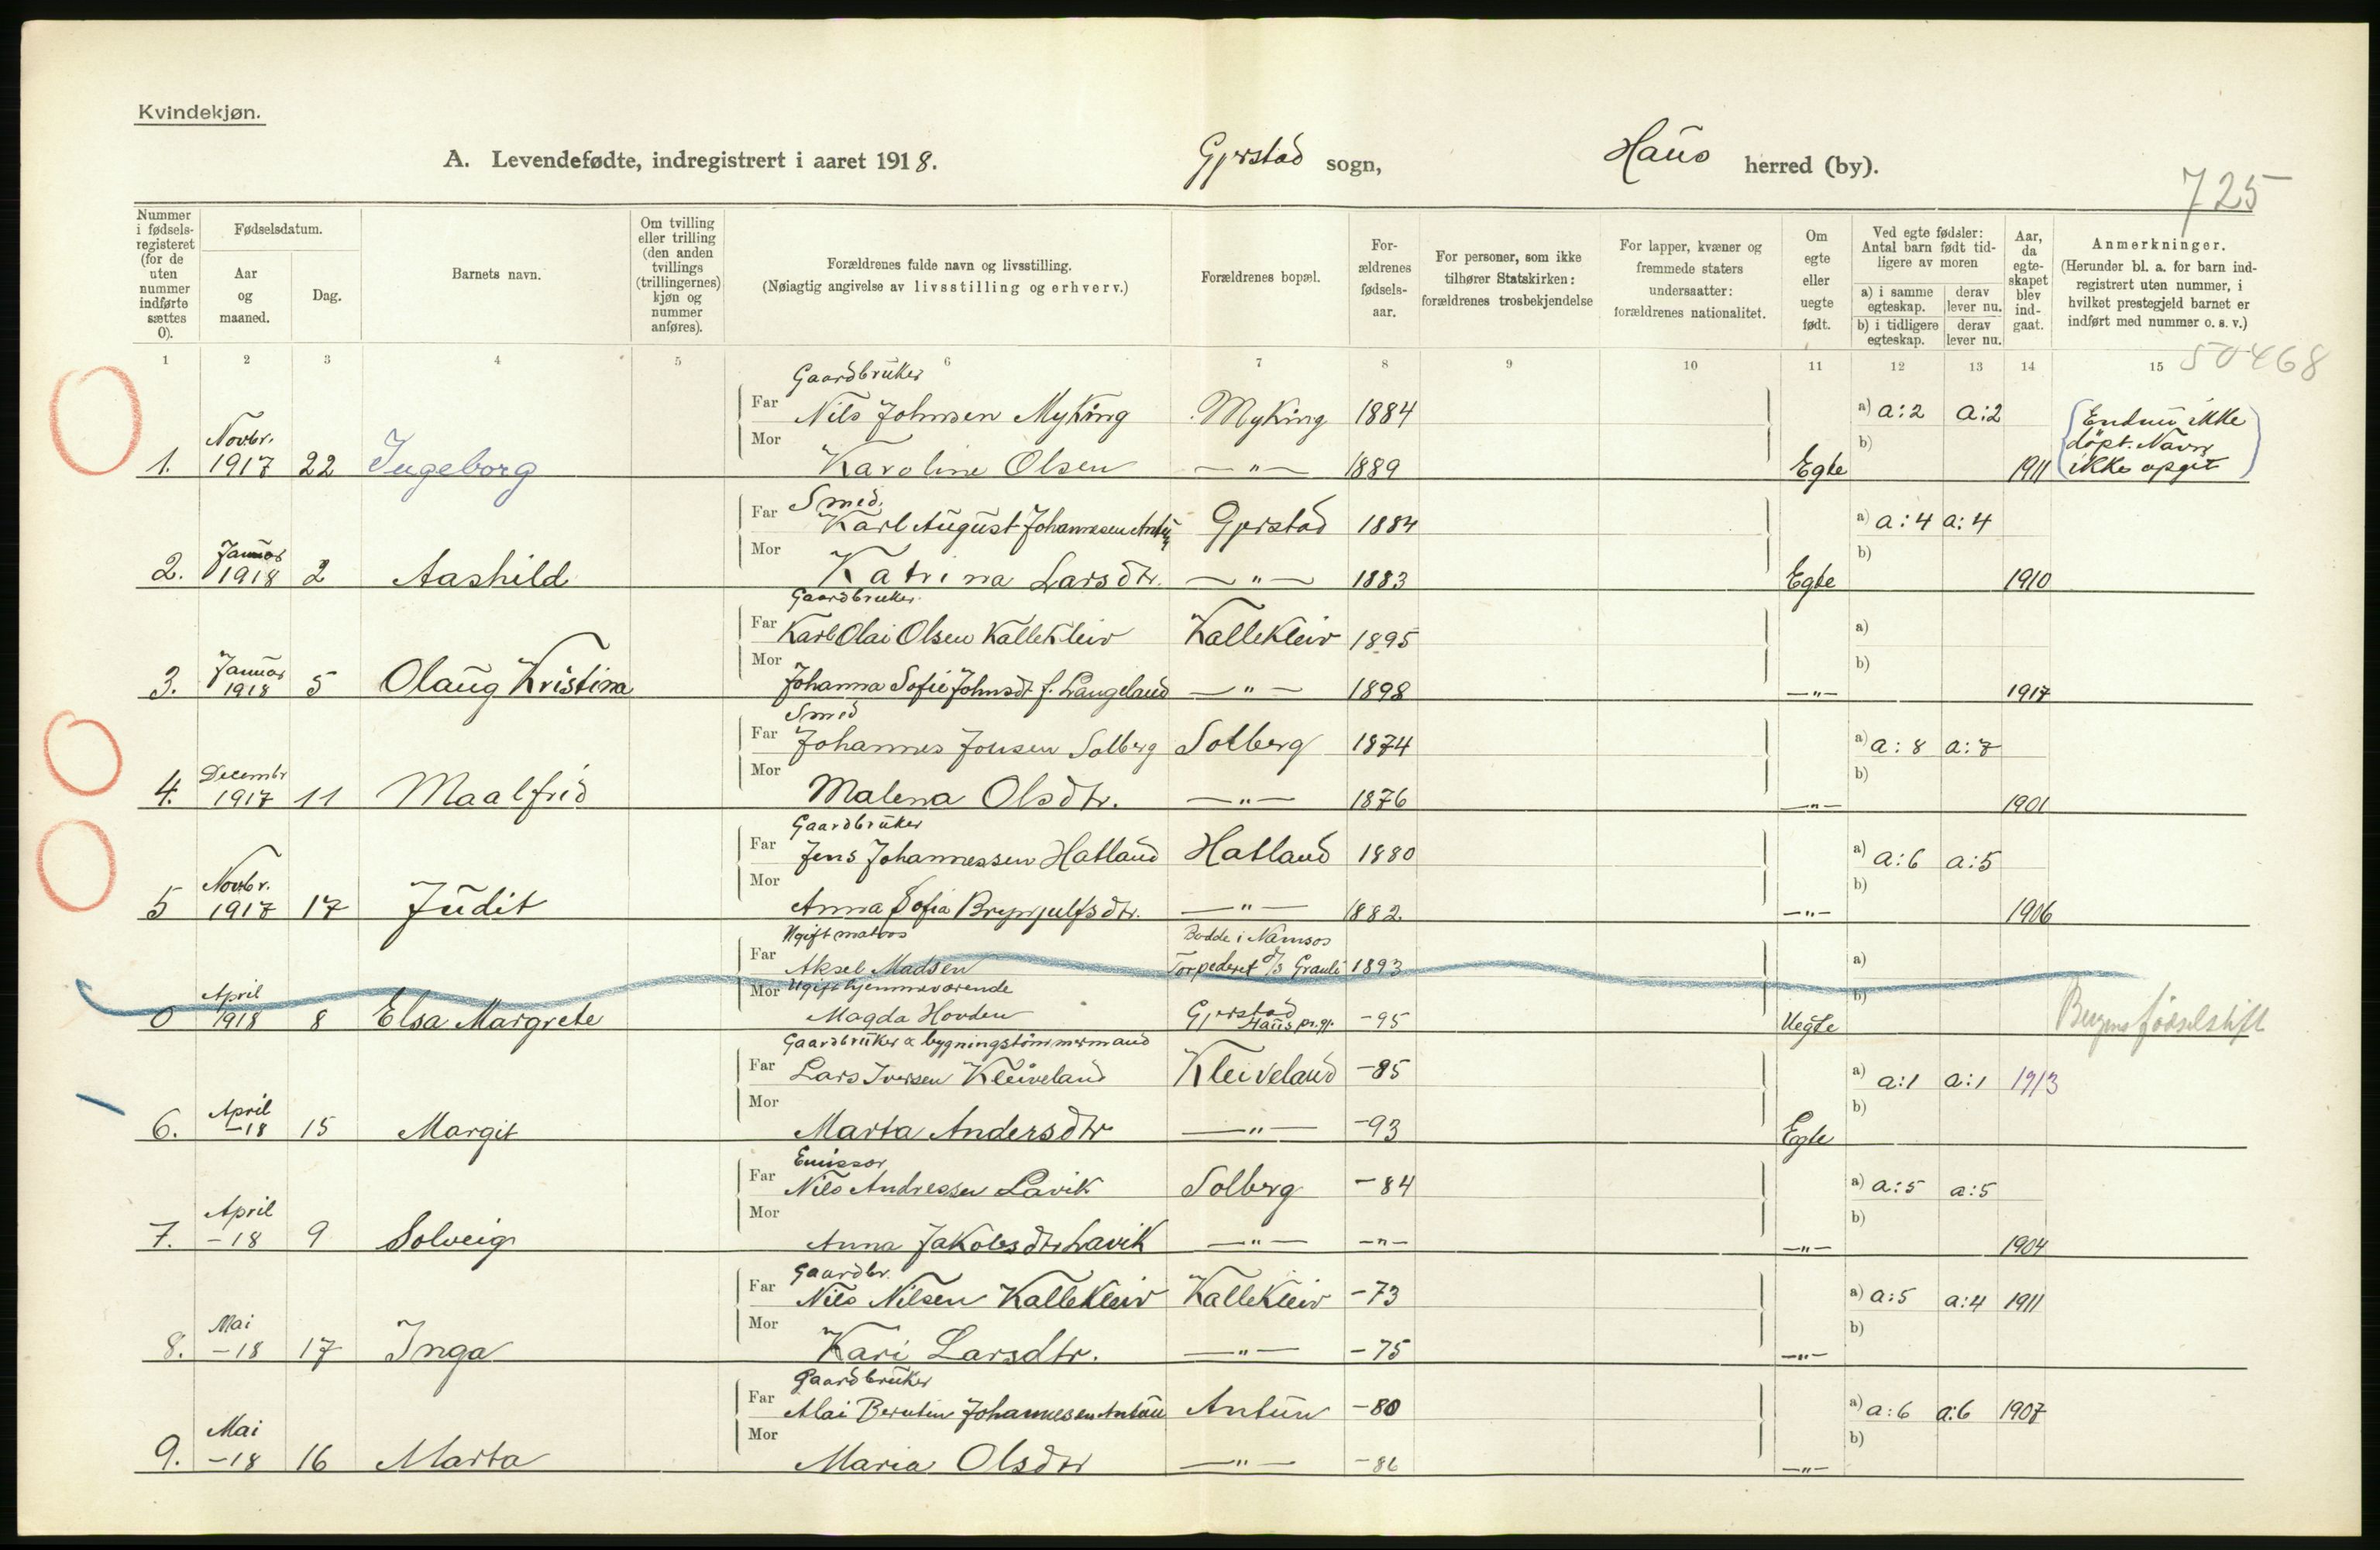 Kvindekjøn.
A. Levendefødte, indregistrert i aaret 1918. Gjerstad sogn, Haus herred (by).
725
Nummer i fødselsregisteret (for de uten nummer indførte sættes 0).
Fødselsdatum.
Aar og maaned.
Dag.
Barnets navn.
Om tvilling eller trilling (den anden tvillings (trillingernes) kjøn og nummer anføres).
Forældrenes fulde navn og livsstilling.
(Nøiagtig angivelse av livsstilling og erhverv.)
Forældrenes bopæl.
Forældrenes fødselsaar.
For personer, som ikke tilhører Statskirken: forældrenes trosbekjendelse
For lapper, kvæner og fremmede staters undersaatter: forældrenes nationalitet.
Om egte eller uegte født.
Ved egte fødsler: Antal barn født tidligere av moren
a) i samme egteskap. derav lever nu.
b) i tidligere egteskap. derav lever nu.
Aar, da egteskapet blev indgaat.
Anmerkninger.
(Herunder bl. a. for barn indregistrert uten nummer, i hvilket prestegjeld barnet er indført med nummer o. s. v.)
1 2 3 4 5 6 7 8 9 10 11 12 13 14 15
50468
Gaardbruker
Far Nils Johnsen Myking Myking 1884 a) a:2 a:2
Mor b)
1. Novbr. 1917 22 Ingeborg Karoline Olsen —"— 1889 Egte 1911
(Endnu ikke
döpt. Navn
ikke opgit)
Smed.
Far Karl August Johannesen Antun Gjerstad 1884 a) a:4 a:4
Mor b)
2. Januar 1918 2 Aashild Katrina Larsdtr. —"— 1883 Egte 1910
Gaardbruker
Far Karl Olai Olsen Kallekleiv Kallekleiv 1895 a)
Mor b)
3. Januar 1918 5 Olaug Kristina Johanna Sofie Johnsdt f. Langeland —"— 1898 —"— 1917
Smed
Far Johannes Jonsen Solberg Solberg 1874 a) a:8 a:7
Mor b)
4. Decembr 1917 11 Maalfrid Malena Olsdtr. —"— 1876 —"— 1901
Gaardbruker
Far Jens Johannessen Hatland Hatland 1880 a) a:6 a:5
Mor b)
5 Novbr. 1917 17 Judit Anna Sofia Brynjulfsdtr. —"— 1882. —"— 1906
Ugift matros Bodde i Namsos
Far Aksel Madsen Torpederet D/S Grauli 1893 a)
Mor Ugift hjemmeværende b)
0 April 1918 8 Elsa Margrete Magda Hovden Gjerstad Haus pr.gj. -95 Uegte Bergens fødselstift
Gaardbruker & bygningstömmermand
Far Lars Iversen Kleiveland Kleiveland -85 a) a:1 a:1 1913
Mor b)
6. April -18 15 Margit Marta Andersdtr —"— -93 Egte
Emissær
Far Nils Andreassen Lavik Solberg -84 a) a:5 a:5
Mor b)
7. April -18 9 Solveig Anna Jakobsdtr Lavik —"— —"— —"— 1904
Gaardbr.
Far Nils Nilsen Kallekleiv Kallekleiv -73 a) a:5 a:4 1911
Mor b)
8. Mai -18 17 Inga Kari Larsdtr. —"— -75 —"—
Gaardbruker
Far Alai Berntin Johannesen Antun Antun -80 a) a:6 a:6 1907
Mor b)
9. Mai -18 16 Marta Maria Olsdtr —"— -86 —"—